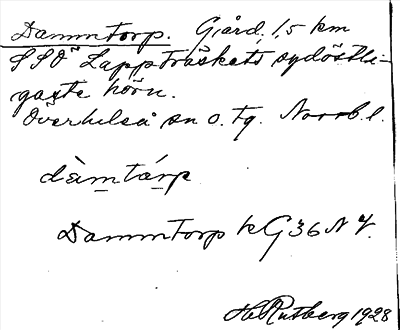 Dammtorp. Gård. 1,5 km
SSO Lappträskets sydöstli-
gaste hörn.
Överkelså sn o. tg. Norrb. l.
dàmtárp
Dammtorp kG36NV.
H. Rutberg 1928